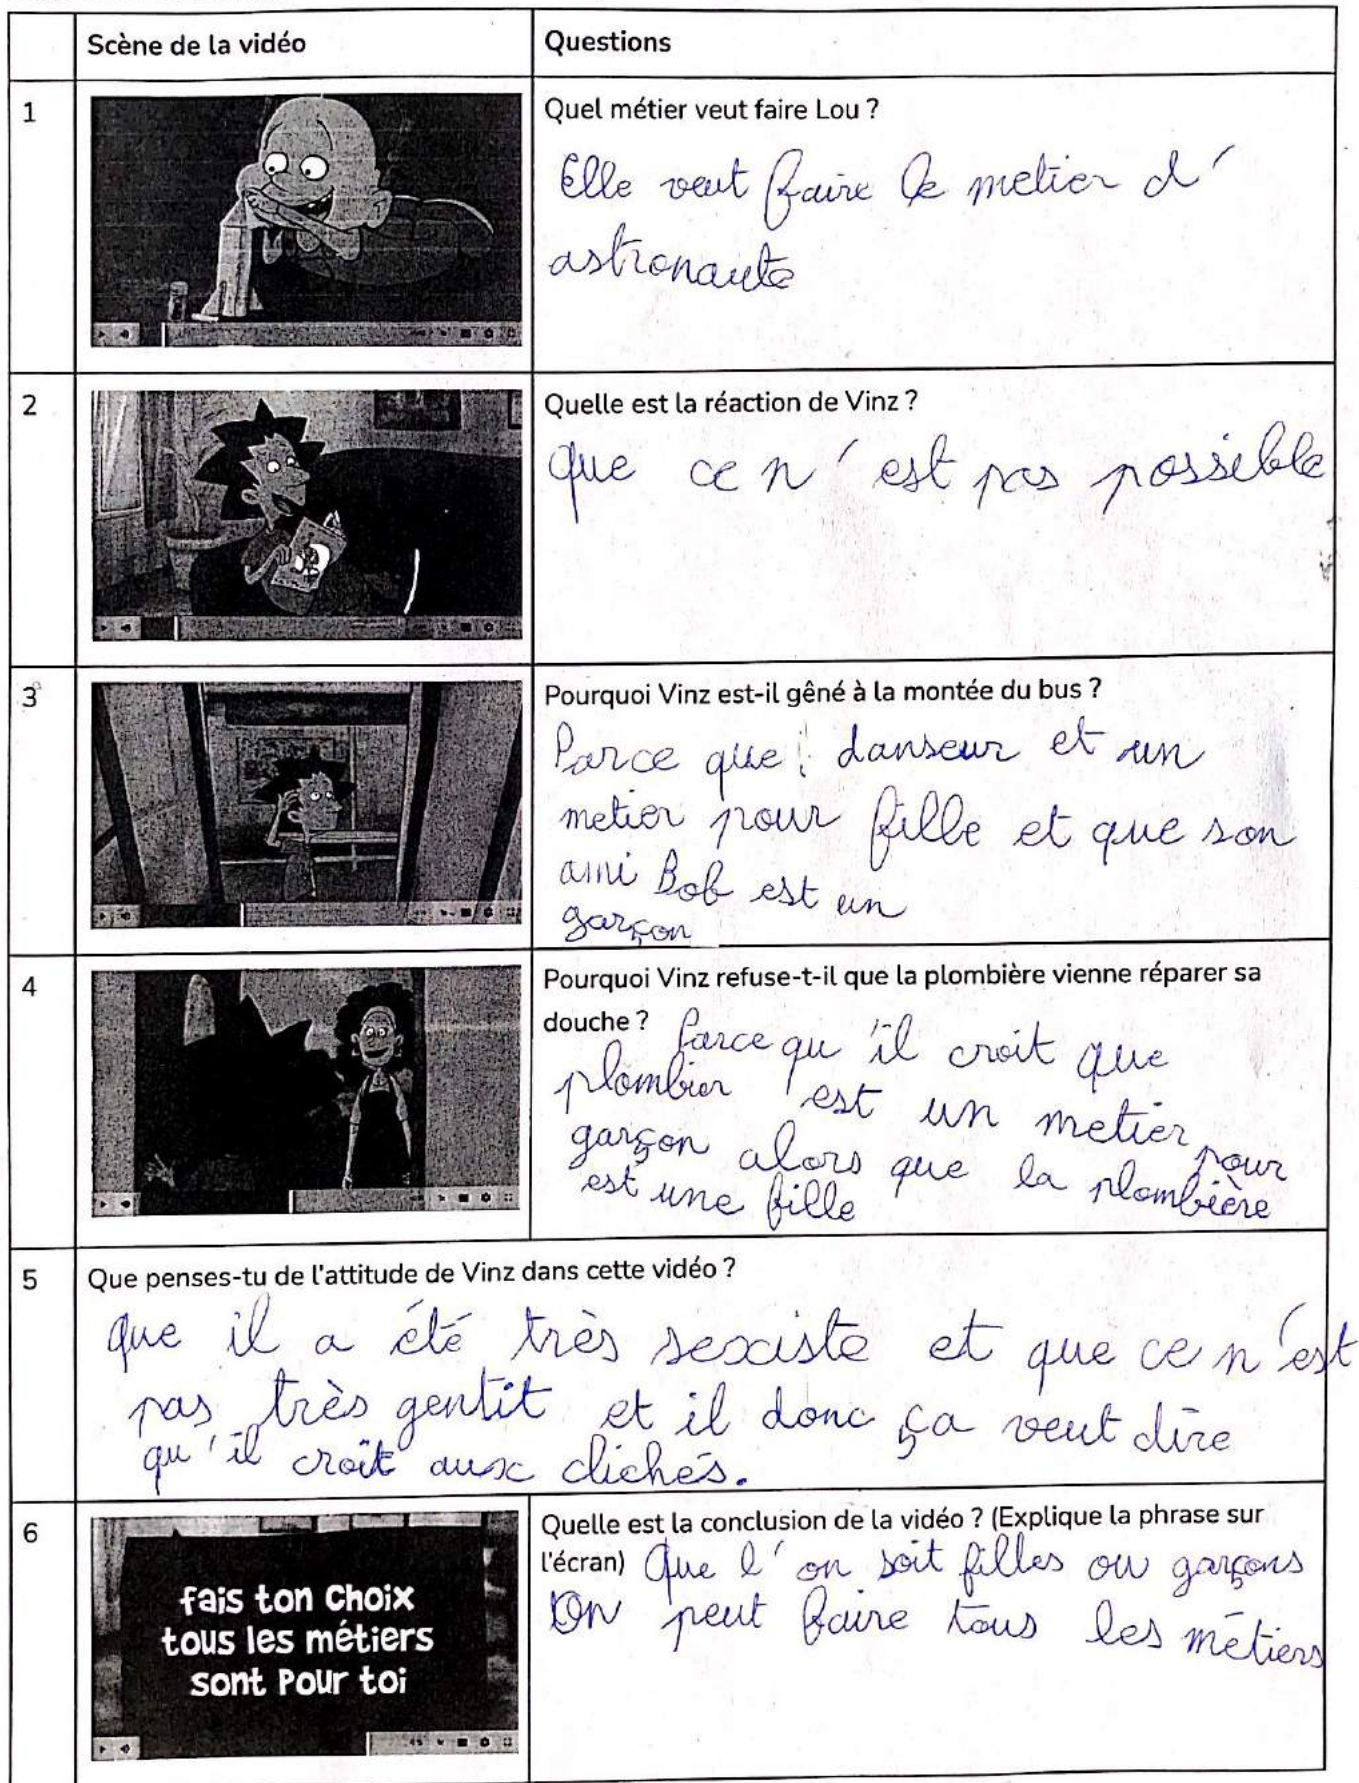 Scène de la vidéo
Questions
1
Quel métier veut faire Lou ?
Elle veut faire le metier d'
astronaute
2
Quelle est la réaction de Vinz ?
que ce n'est pas possible
3
Pourquoi Vinz est-il gêné à la montée du bus ?
Parce que danseur et un
metier pour fille et que son
ami Bob est un
garçon
4
Pourquoi Vinz refuse-t-il que la plombière vienne réparer sa
douche ? Parce qu'il croit que
plombier est un metier pour
garçon alors que la plombière
est une fille
5
Que penses-tu de l'attitude de Vinz dans cette vidéo ?
que il a été très sexiste et que ce n'est
pas très gentit et il donc ça veut dire
qu'il croît aux clichés.
6
fais ton choix
tous les métiers
sont pour toi
Quelle est la conclusion de la vidéo ? (Explique la phrase sur
l'écran) Que l'on soit filles ou garçons
On peut faire tous les métiers